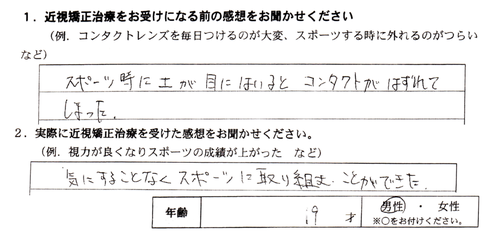 1．近視矯正治療をお受けになる前の感想をお聞かせください
(例．コンタクトレンズを毎日つけるのが大変、スポーツする時に外れるのがつらい
など)
スポーツ時に土が目にはいると コンタクトがはずれて
しまった.
2．実際に近視矯正治療を受けた感想をお聞かせください。
(例．視力が良くなりスポーツの成績が上がった など)
気にすることなくスポーツに取り組むことができた.
年齢 19 才 男性 ・ 女性
※○をお付けください。